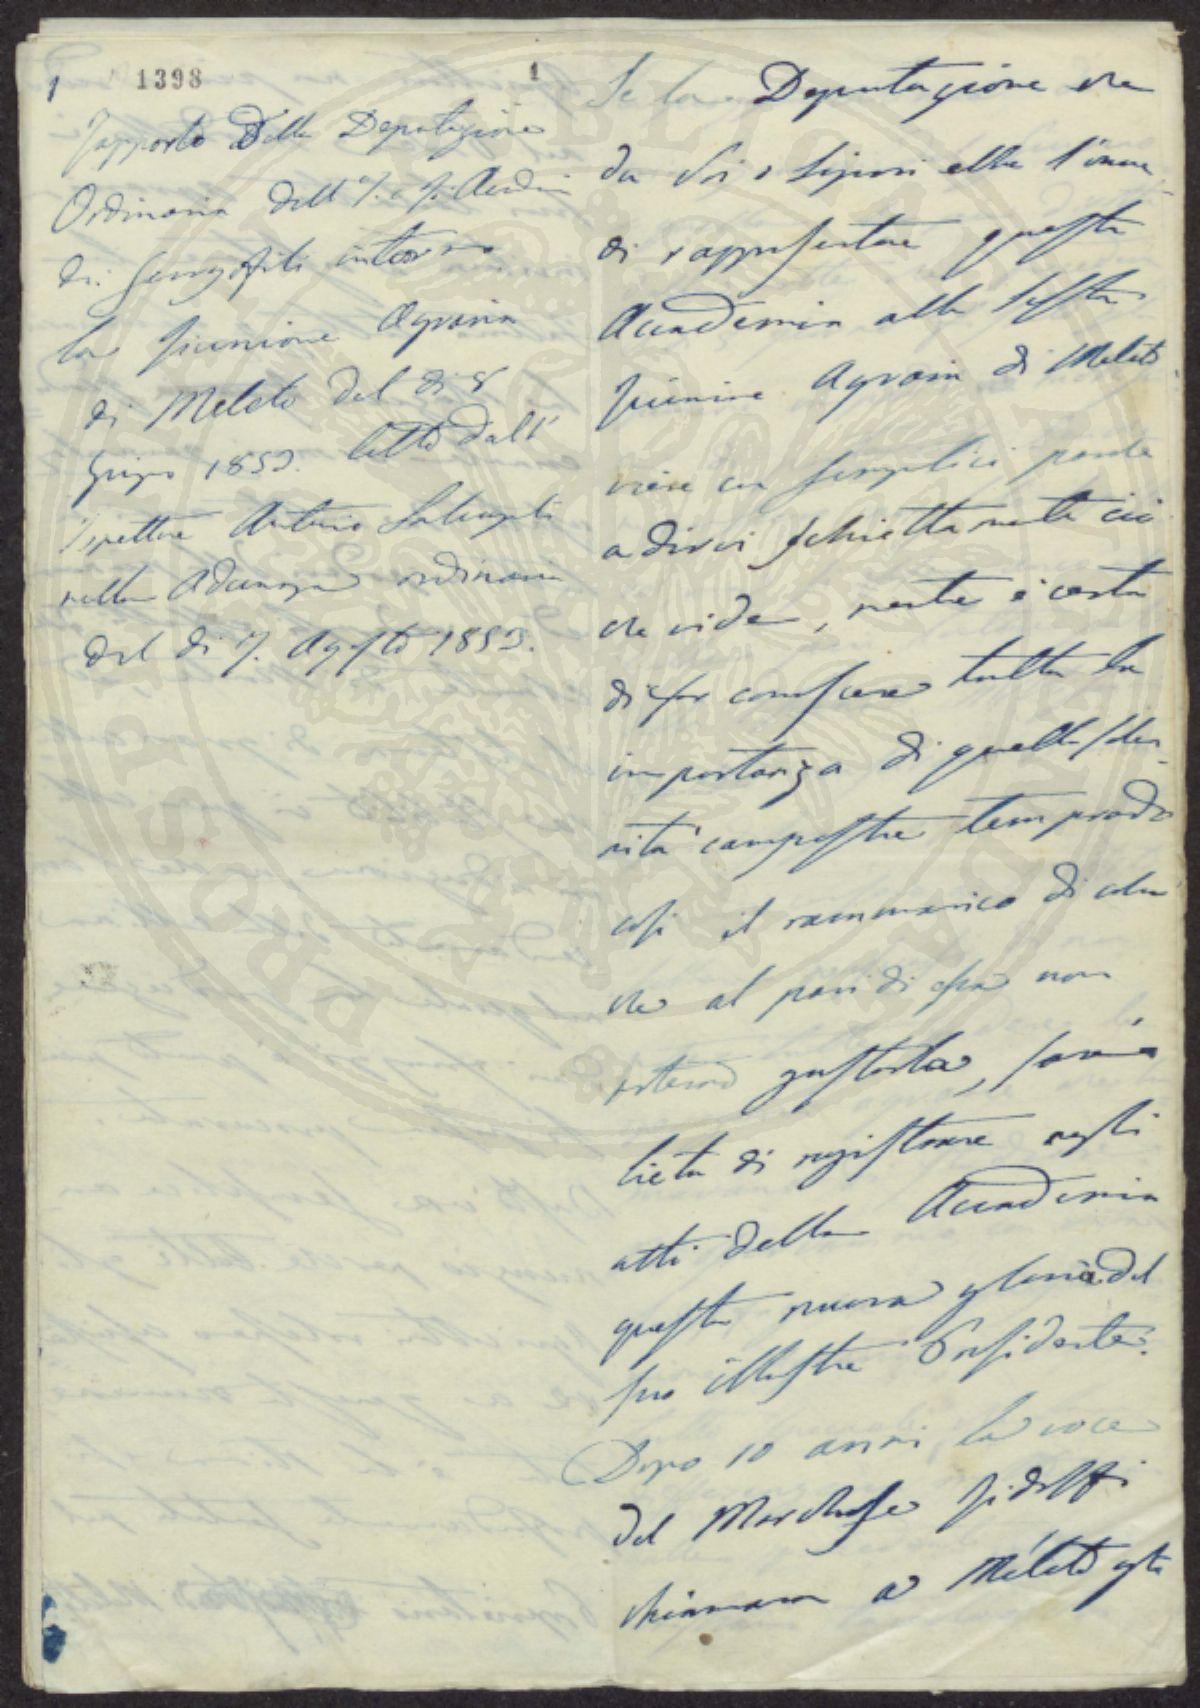 1
1398
1
Rapporto della Deputazione
Ordinaria dell' I. e R. Accad.
dei Georgofili intorno
la Riunione Agraria
di Meleto del dì 8
Giugno 1853. letto dall'
Ispettore Antonio Salvagnoli
nella Adunanza ordinaria
del dì 7. Agosto 1853.
Se la Deputazione che
da Voi o Signori ebbe l'onore
di rappresentare questa
Accademia alla festa
Riunione Agraria di Meleto
viene con semplici parole
a dirvi schiettamente ciò
che vide, mentre è certa
di far conoscere tutta la
importanza di quella solen-
nità campestre temprando
così il rammarico di coloro
che al pari di essa non
poterono gustarla, sarà
lieta di registrare negli
atti della Accademia
questa nuova gloria del
suo illustre Presidente.
Dopo 10 anni la voce
del Marchese Ridolfi
chiamava a Meleto gli